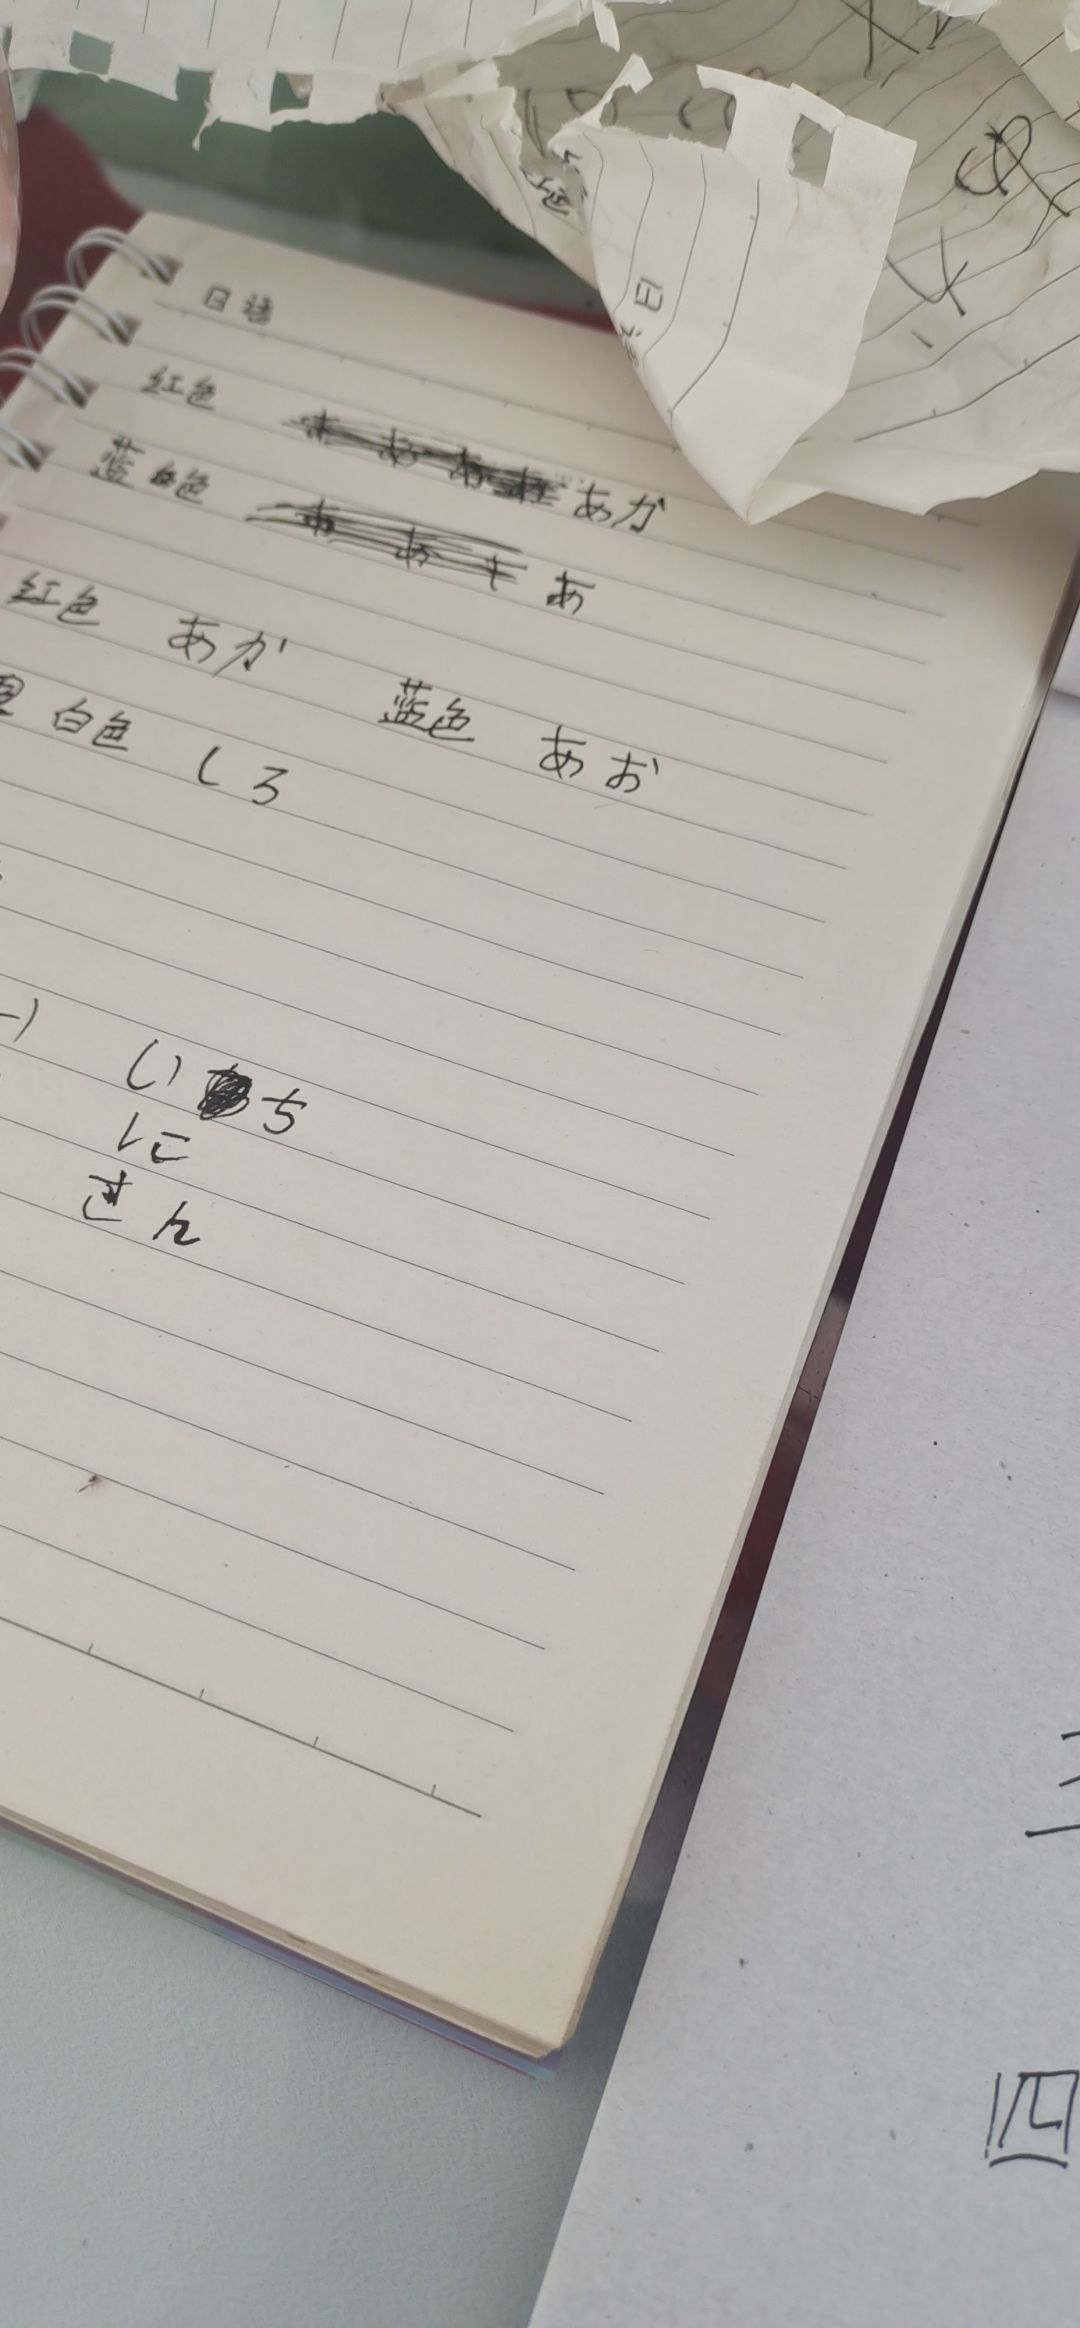 日语
红色 あか
蓝色 あ
红色 あか 蓝色 あお
白色 しろ
いち
に
さん
四